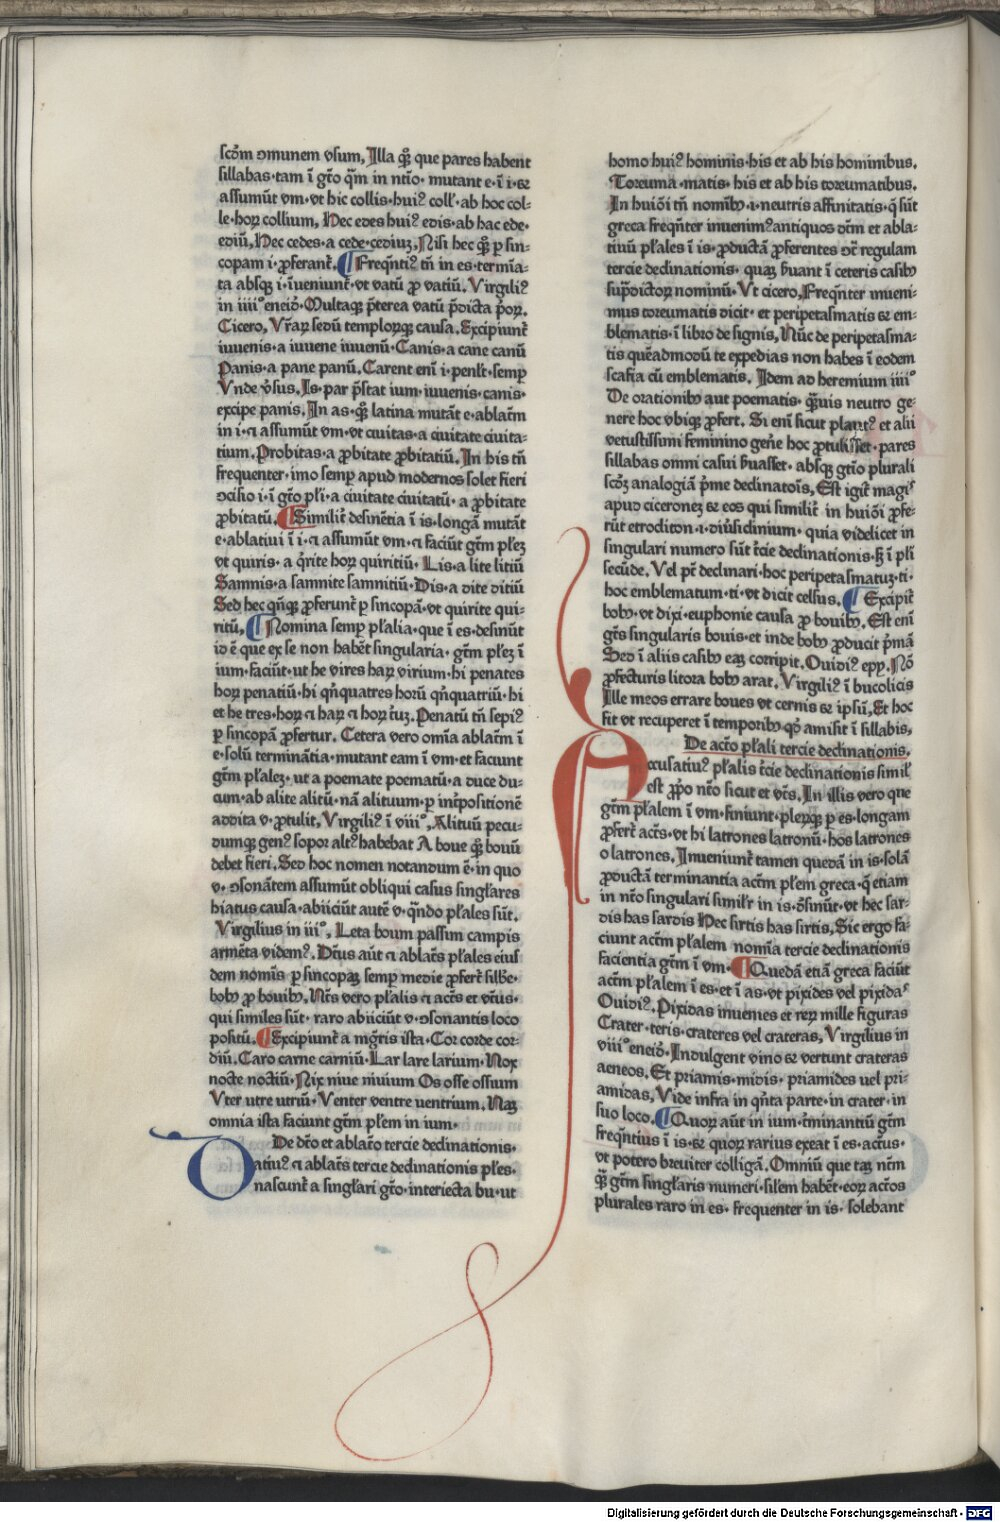 scḋm ↄmunem vsum, Illa qꝫ que pares habent
sillabas·tam ī gtō qm̄ in ntīo· mutant e·ī i·⁊
assumūt vm·vt hic collis·huiꝰ coll'·ab hoc col⸗
le·hoꝝ collium, Hec edes huiꝰ edis·ab hac ede·
ediū, Hec cedes·a cede·cediuꝫ, Nisi hec qꝫ p sin⸗
copam i·ꝓferant̄. ¶ Freqn̄tiꝰ tn̄ in es·termīa⸗
ta absqꝫ i·īueniunt̄·vt vatū ꝓ vatiū, Virgiliꝰ
in iiiiº eneid̄·Multaqꝫ p̄terea vatū p̄dicta p̄oꝝ.
Cicero, Vr̄aꝝ sedū temploꝝqꝫ causa, Excipiunt̄
iuuenis·a iuuene iuuenū·Canis·a cane canū
Panis·a pane panū, Carent enī i·penl̄t·semꝑ
Vnde v̄sus, Is·par p̄stat ium·iuuenis·canis·
excipe panis, In as·qꝫ latina mutāt e·ablatm̄
in i·⁊ assumūt vm·vt ciuitas·a ciuitate ciuita⸗
tium, Probitas·a ꝓbitate ꝓbitatiū, In his tn̄
frequenter·imo semꝑ apud modernos solet fieri
ↄcisio i·ī gtō pl̄i·a ciuitate ciuitatū·a ꝓbitate
ꝓbitatū, ¶ Similit̄ desinētia ī is·longā mutāt
e·ablatiui ī i·⁊ assumūt vm·⁊ faciūt gtm̄ pl̄eꝫ
vt quiris·a q̄rite hoꝝ quiritiū·Lis·a lite litiū
Samnis·a samnite samnitiū·Dis·a dite ditiū
Sed hec qn̄qꝫ ꝓferunt̄ ꝑ sincopā·vt quirite qui⸗
ritū, ¶ Nomina semꝑ pl̄alia·que ī es·desinūt
id ē que ex se non habēt singularia·gtm̄ pl̄eꝫ ī
ium·faciūt·ut he vires haꝝ virium·hi penates
hoꝝ penatiū·hi qn̄quatres horū qn̄quatriū·hi
et he tres·hoꝝ ⁊ haꝝ ⁊ hoꝝ t̄uꝫ, Penatū tn̄ sepiꝰ
ꝑ sincopā ꝓfertur, Cetera vero om̄ia ablatm̄ ī
e·solū terminātia·mutant eam ī vm·et faciunt
gtm̄ pl̄aleꝫ·ut a poemate poematū·a duce du⸗
cum·ab alite alitū·nā alituum·ꝑ int̄positionē
addita v·ꝓtulit, Virgiliꝰ ī viiiº, Alituū pecu⸗
dumqꝫ genꝰ sopor altꝰ habebat A boue qꝫ bouū
debet fieri, Sed hoc nomen notandum ē·in quo
v·ↄsonātem assumūt obliqui casus singl̄ares
hiatus causa·abiiciūt autē v·qn̄do pl̄ales sūt,
Virgilius in iiiº, Leta boum passim campis
armēta videmꝰ, Dt̄us aūt ⁊ ablatꝰ pl̄ales eius
dem nomīs ꝑ sincopaꝫ semꝑ medie ꝓfert̄ sill̄be·
bobꝫ ꝓ bouibꝫ, Nt̄s vero pl̄alis ⁊ actꝰ et vt̄us·
qui similes sūt·raro abiiciūt v·ↄsonantis loco
positū, ¶ Excipiunt̄ a mḡris ista·Cor corde cor⸗
diū, Caro carne carniū·Lar lare larium·Nox
nocte noctiū·Nix niue niuium Os osse ossium
Vter utre utriū·Venter ventre uentrium, Naꝫ
omnia ista faciunt gtm̄ pl̄em in ium·
De dtō et ablatō tercie declinationis·
Datiuꝰ ⁊ ablatꝰ tercie declinationis pl̄es·
nascunt̄ a singl̄ari gtō·interiecta bu·ut
homo huiꝰ hominis·his et ab his hominibus,
Toreuma·matis·his et ab his toreumatibus,
In huiōi tn̄ nomībꝫ·i·neutris affinitatis·q̄ sūt
greca freqn̄ter inuenimꝰ antiquos dtm̄ et abla⸗
tiuū pl̄ales ī is·ꝓductā ꝓferentes ↄt̄ regulam
tercie declinationis·quaꝫ s̄uant ī ceteris casibꝫ
sup̄dictoꝝ nominū·Vt cicero, Freqn̄ter inueni⸗
mus toreumatis dicit·et peripetasmatis ⁊ em⸗
blematis·ī libro de signis, Nūc de peripetasma⸗
tis quēadmodū te expedias non habes ī eodem
scafia cū emblematis, Idem ad heremium iiiiº
De orationibꝫ aut poematis·qꝫuis neutro ge⸗
nere hoc vbiqꝫ ꝓfert, Si enī sicut plautꝰ et alii
vetustissimi feminino gen̄e hoc ꝓtulisset·pares
sillabas omni casui s̄uasset·absqꝫ gtīo plurali
scdꝫ analogiā p̄me declinatoīs, Est igit̄ magis
apud ciceroneꝫ ⁊ eos qui similit̄ in huiōi ꝓfe⸗
rūt etroditon·i·diūsiclinium·quia videlicet in
singulari numero sūt t̄cie declinationis·ꝫ ī pl̄i
secūde, Vel pt̄ declinari·hoc peripetasmatuꝫ·ti·
hoc emblematum·ti·vt dicit celsus, ¶ Excipit̄
bobꝫ·vt dixi·euphonie causa ꝓ bouibꝫ, Est enī
gtꝰ singularis bouis·et inde bobꝫ ꝓducit p̄mā
Sed ī aliis casibꝫ eaꝫ corripit, Ouidiꝰ epꝝ, Nō
ꝓfecturis litora bobꝫ arat, Virgiliꝰ ī bucolicis
Ille meos errare boues vt cernis ⁊ ipsū, Et hoc
sit vt recuperet ī temporibꝫ qd̄ amisit ī sillabis,
De actō pl̄ali tercie declinationis,
Accusatiuꝰ pl̄alis t̄cie declinationis simil'
est ꝓpo ntō sicut et vtꝰ, In illis vero que
gtm̄ pl̄alem ī vm·finiunt·pleꝝqꝫ ꝑ es·longam
ꝓfert̄ actꝰ·vt hi latrones latronū·hos latrones
o latrones, Inueniunt̄ tamen quedā in is·solā
ꝓductā terminantia actm̄ pl̄em greca·q̄ etiam
in ntō singulari simil̄r in is·dꝰinūt·vt hec sar⸗
dis has sardis Hec sirtis has sirtis, Sic ergo fa⸗
ciunt actm̄ pl̄alem nomīa tercie declinationis
facientia gtm̄ ī vm· ¶ Quedā etiā greca faciūt
actm̄ pl̄alem ī es·et ī as·vt pixides vel pixidas
Ouidiꝰ, Pixidas inuenies et reꝝ mille figuras
Crater·teris·crateres vel crateras, Virgilius in
viiiº eneid̄·Indulgent vino ⁊ vertunt crateras
aeneos, Et priamis·midis·priamides uel pri⸗
amidas, Vide infra in qn̄ta parte·in crater·in
suo loco, ¶ Quoꝝ aūt in ium·t̄minantiū gtm̄
freqn̄tius ī is·⁊ quoꝝ rarius exeat ī es·actꝰus·
vt potero breuiter colligā, Omniū que taꝫ ntm̄
qꝫ gtm̄ singl̄aris numeri·sil̄em habēt·eoꝝ actōs
plurales raro in es·frequenter in is·solebant
Digitalisierung gefördert durch die Deutsche Forschungsgemeinschaft - DFG